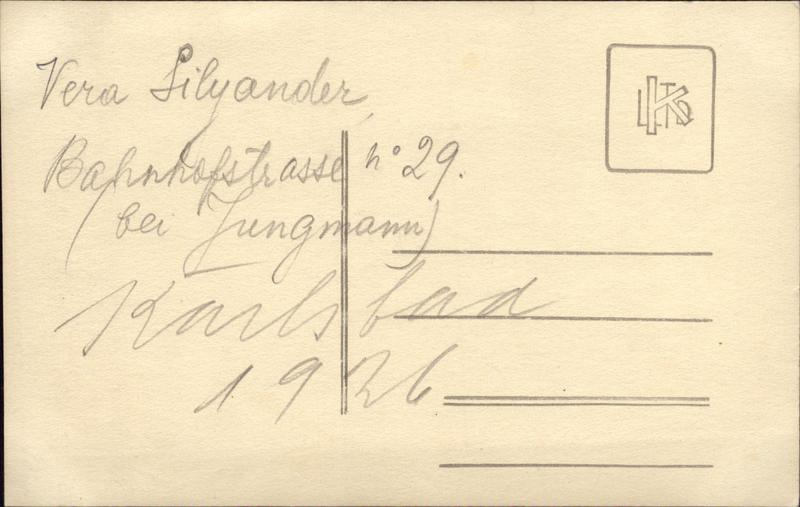 Vera Silyander
Bahnhofstrasse n° 29.
(bei Jungmann)
Karlsbad
1926